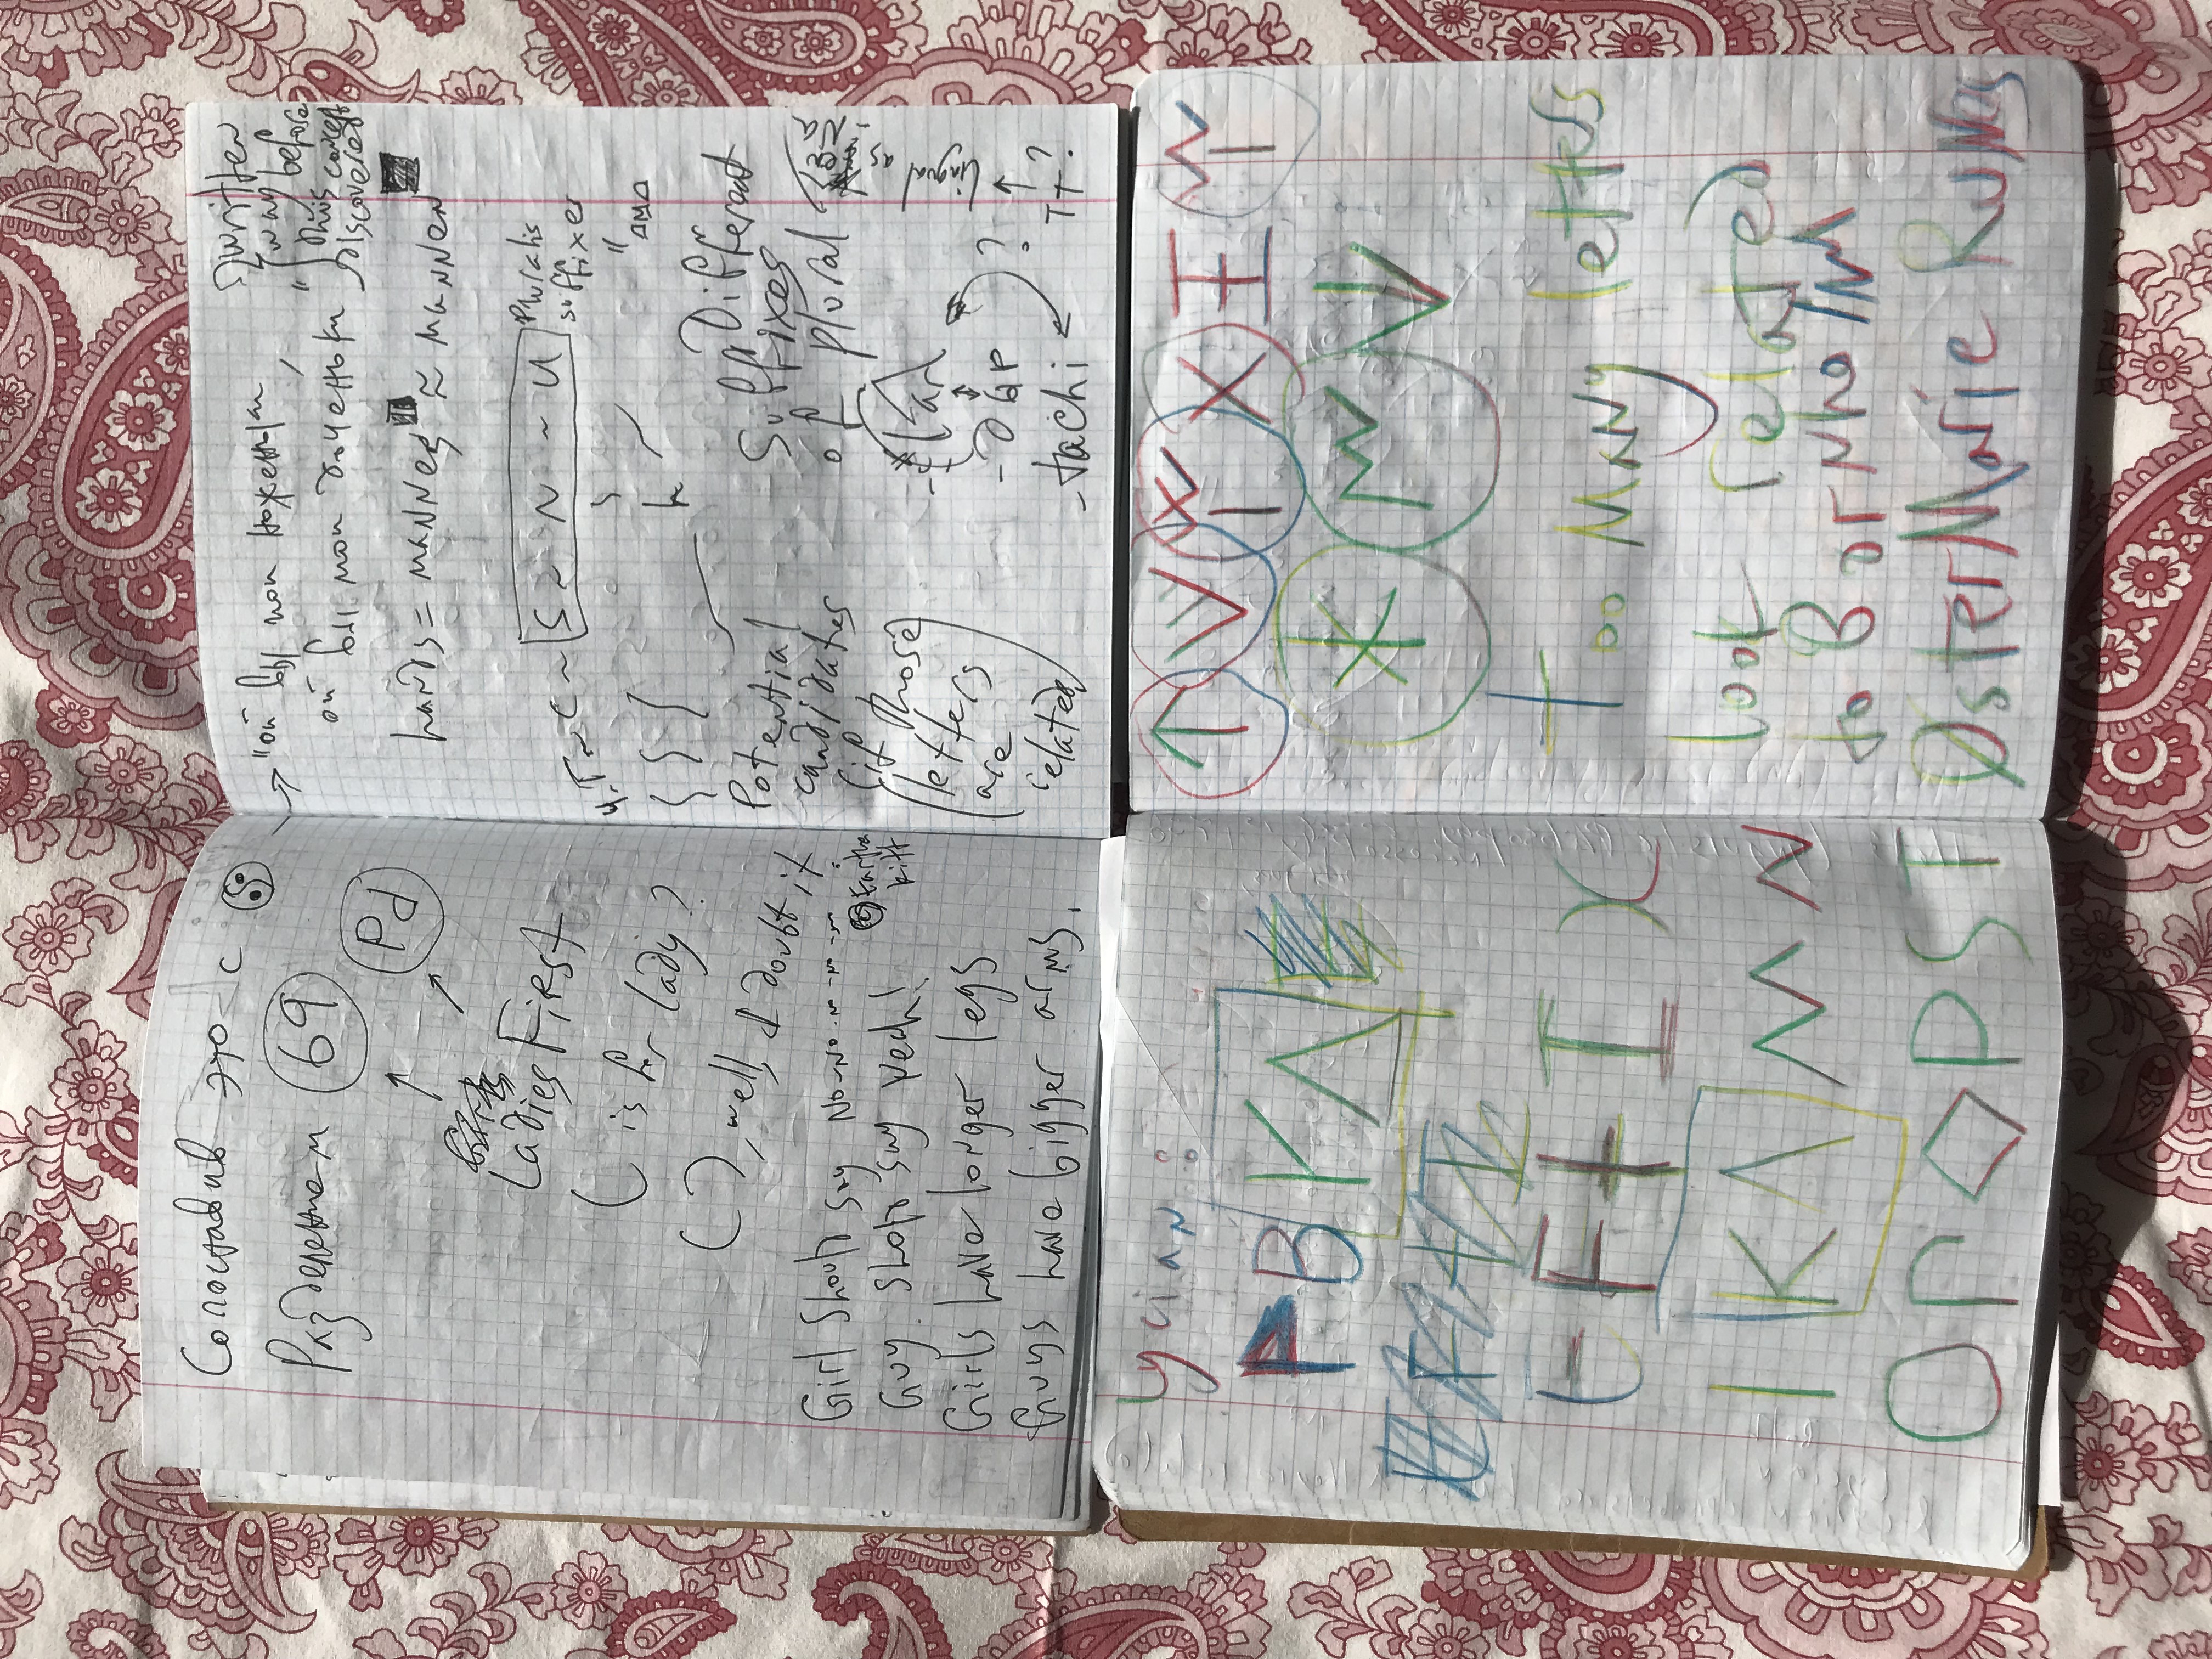 Сопоставив это с
Разделением 69
Pd
Ladies First
( is for lady?
( ), well, I doubt it
Girl Should say No-No-no-no-no
Guy Should say Yeah!
Eartha
kitt
Girls have longer legs
Guys have bigger arms.
"ой вы мои ноженьки
ой вы мои доченьки"
written
way before
this concept
discovered
hands = manner ≈ mannen
ч-т~c~ S ~ N ~ U Pluralis
suffixer
h
Potential
candidates
(if those
letters
are
related)
Different
Suffixes
of plural
-lar
-дар
-tachi
?
TT?
Lingual as
-Na
Lycian:
P B K Δ E
E F I I X
I K Λ M N
O Γ ◇ P S T
↑ V Y X I
T
Too Many letters
look related
to Bornholm
Østermarie Runes